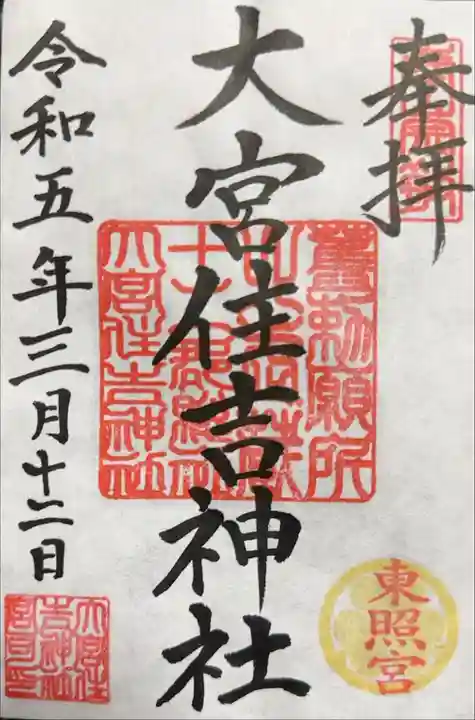 奉拝
大宮住吉神社
令和五年三月十二日
東照宮
大宮住吉神社